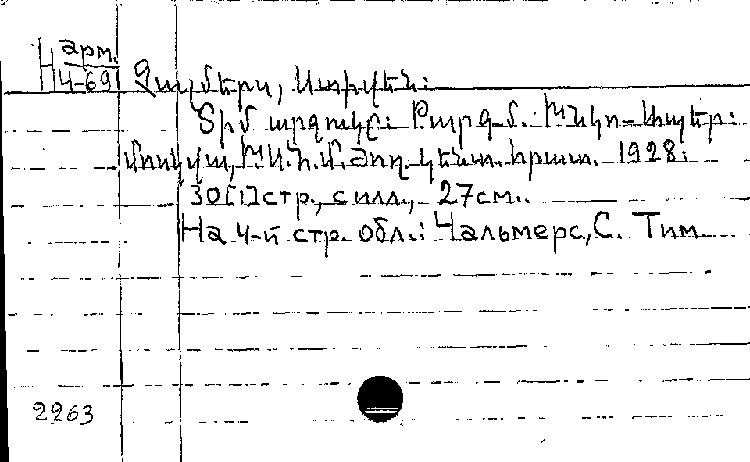 арм.
Н 4-69
Չալմերս, Ստիվեն։
Տիմ արջուկը։ Թարգմ.
Մոսկվա, ԽՍՀՄ Ժող. կենտ. հրատ. 1928։
30[1]стр., с илл., 27см.
На 4-й стр. обл.: Чальмерс, С. Тим
2263